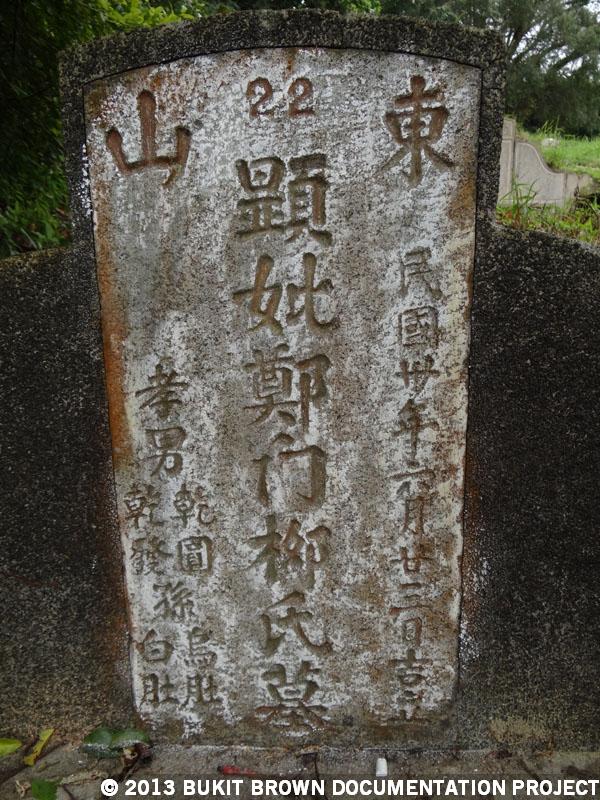 22
東
山
民國卅年六月廿三日吉立
顕妣鄭门柳氏墓
孝男
乾圓
乾發
孫
烏肚
白肚
© 2013 BUKIT BROWN DOCUMENTATION PROJECT